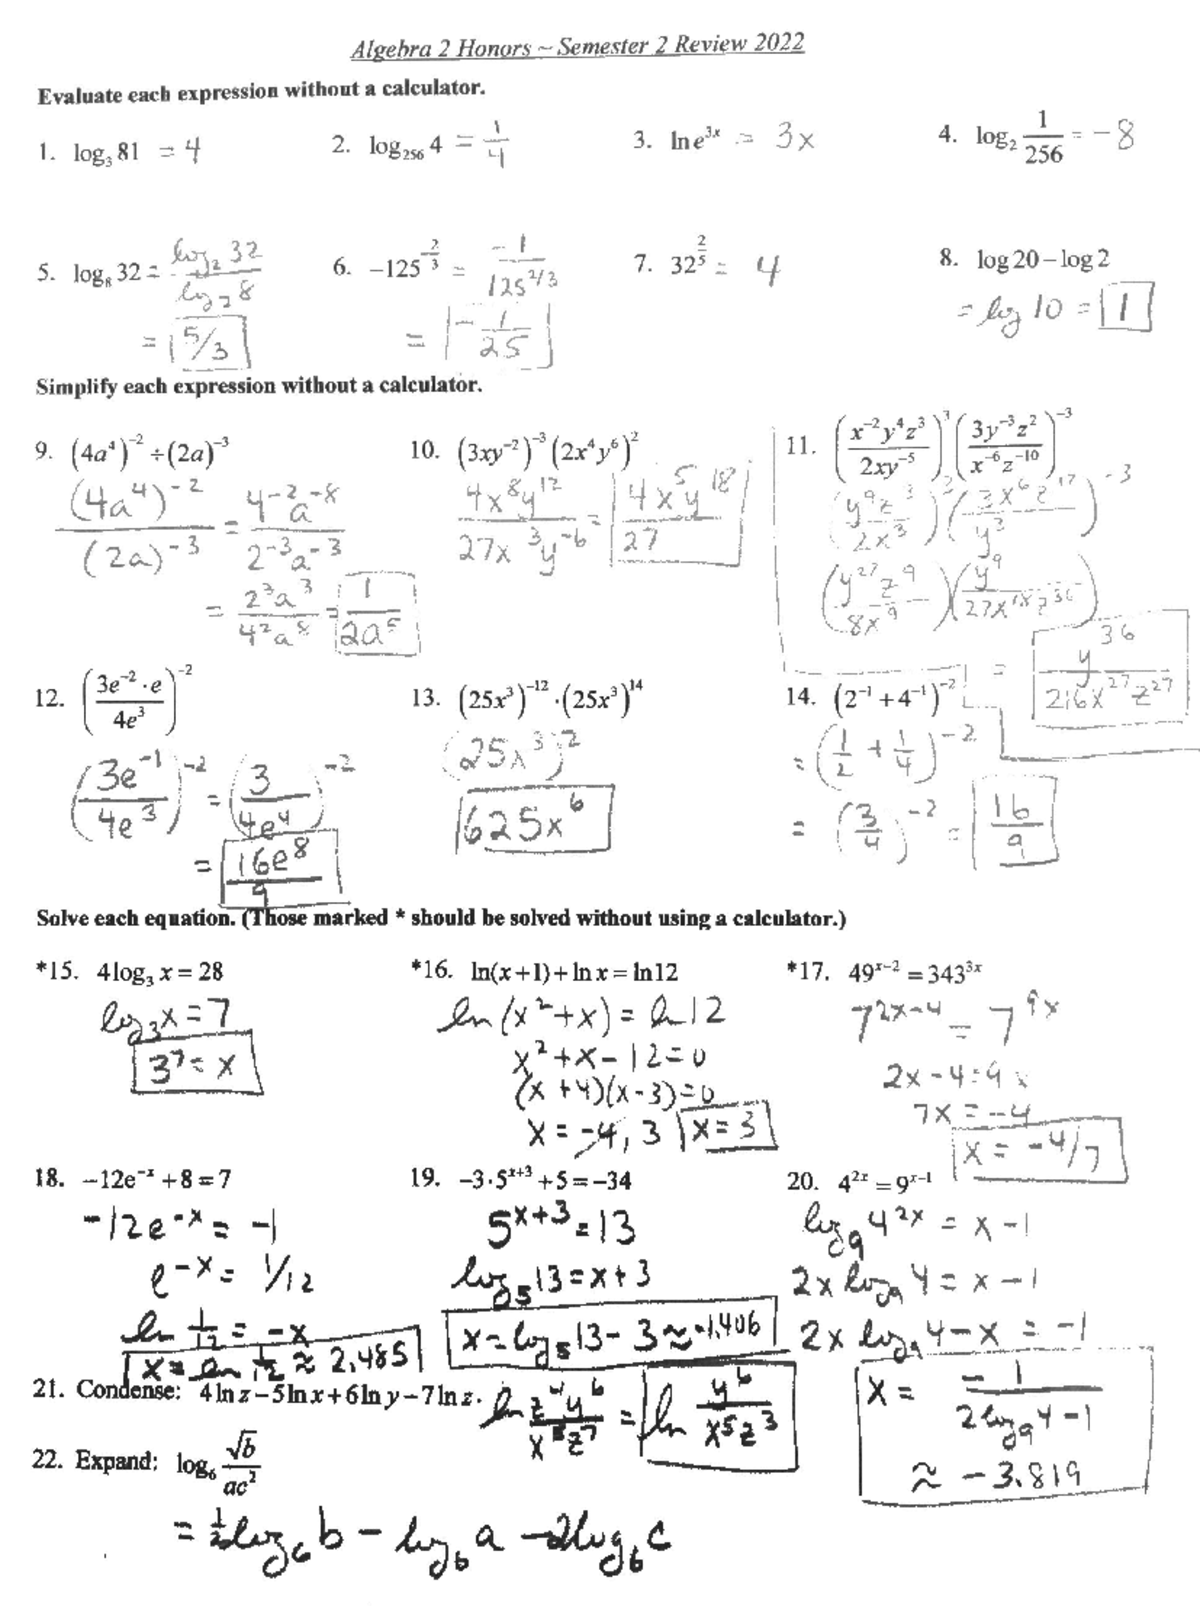 Algebra 2 Honors ~ Semester 2 Review 2022
Evaluate each expression without a calculator.
1. log₃ 81 = 4
2. log₂₅₆ 4 = 1/4
3. ln e^(3x) = 3x
4. log₂ 1/256 = -8
5. log₈ 32 = log₂ 32 / log₂ 8
= 5/3
6. -125^(-2/3) = -1 / 125^(2/3)
= -1/25
7. 32^(2/5) = 4
8. log 20 – log 2
= log 10 = 1
Simplify each expression without a calculator.
9. (4a⁴)⁻² ÷ (2a)⁻³
(4a⁴)⁻² / (2a)⁻³ = 4⁻²a⁻⁸ / 2⁻³a⁻³
= 2³a³ / 4²a⁸ = 1 / 2a⁵
10. (3xy⁻²)⁻³ (2x⁴y⁶)²
4x⁸y¹² / 27x³y⁻⁶ = 4x⁵y¹⁸ / 27
11. (x⁻²y⁴z³ / 2xy⁻⁵)³ (3y⁻³z² / x⁻⁶z⁻¹⁰)⁻³
(y⁹z³ / 2x³)³ (3x⁶z¹² / y³)⁻³
(y²⁷z⁹ / 8x⁹)(y⁹ / 27x¹⁸z³⁶)
= y³⁶ / 216x²⁷z²⁷
12. (3e⁻² · e / 4e³)⁻²
(3e⁻¹ / 4e³)⁻² = (3 / 4e⁴)⁻²
= 16e⁸ / 9
13. (25x³)⁻¹² · (25x³)¹⁴
(25x³)²
625x⁶
14. (2⁻¹ + 4⁻¹)⁻²
= (1/2 + 1/4)⁻²
= (3/4)⁻² = 16/9
Solve each equation. (Those marked * should be solved without using a calculator.)
*15. 4 log₃ x = 28
log₃ x = 7
3⁷ = x
*16. ln(x+1) + ln x = ln 12
ln (x² + x) = ln 12
x² + x - 12 = 0
(x + 4)(x - 3) = 0
x = -4, 3 x = 3
*17. 49^(x–2) = 343^(3x)
7^(2x-4) = 7^(9x)
2x - 4 = 9x
7x = -4
x = -4/7
18. –12e^(-x) + 8 = 7
-12e^(-x) = -1
e^(-x) = 1/12
ln 1/12 = -x
x = ln 1/12 ≈ 2.485
19. –3·5^(x+3) + 5 = –34
5^(x+3) = 13
log₅ 13 = x + 3
x = log₅ 13 - 3 ≈ -1.406
20. 4^(2x) = 9^(x–1)
log₉ 4^(2x) = x - 1
2x log₉ 4 = x - 1
2x log₉ 4 - x = -1
x = -1 / 2log₉ 4 - 1
≈ -3.819
21. Condense: 4 ln z – 5 ln x + 6 ln y – 7 ln z. ln z⁴y⁶ / x⁵z⁷ = ln y⁶ / x⁵z³
22. Expand: log₆ √b / ac²
= 1/2 log₆ b - log₆ a - 2log₆ c